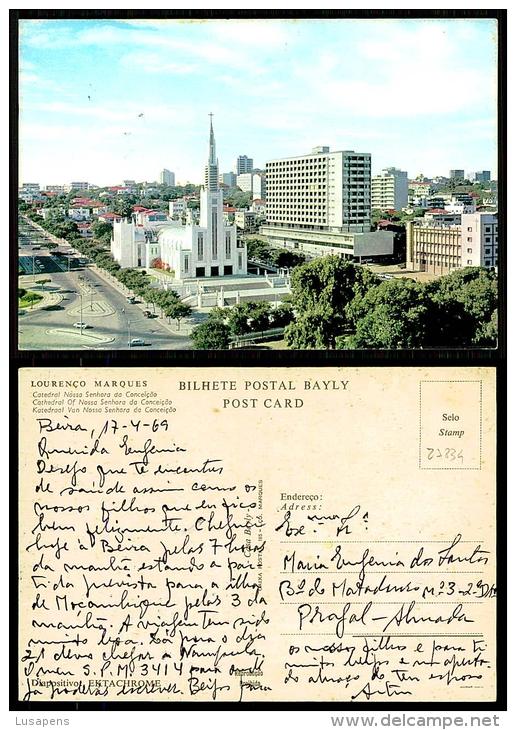 LOURENÇO MARQUES
Catedral Nossa Senhora da Conceição
Cathedral Of Nossa Senhora da Conceição
Katedraal Van Nossa Senhora da Conceição
BILHETE POSTAL BAYLY
POST CARD
Selo
Stamp
Beira, 17-4-69
Querida Eugenia
Desejo que te encontres
de saúde assim como os
nossos filhos que eu fico
bem felizmente. Cheguei
hoje à Beira pelas 7 horas
da manhã estando a par-
tida prevista para a ilha
de Moçambique pelas 3 da
manhã. A viagem tem sido
muito boa. Lá para o dia
21 devo chegar a Nampula.
O meu S.P.M. 3414 para onde
já poderás escrever. Beijos para
Diapositivo: EKTACHROME
Reprodução
proibida
Casa Bayly
CAIXA POSTAL 185 - LÇO. MARQUES
Endereço:
Adress:
Ex.ma Sr.ª
Maria Eugenia dos Santos
B.º do Matadouro n.º 3-2.º Dt.º
Pragal-Almada
os nossos filhos e para ti
muitos beijos e um aperta-
do abraço do teu esposo
Artur
Lusapens
delcampe.net